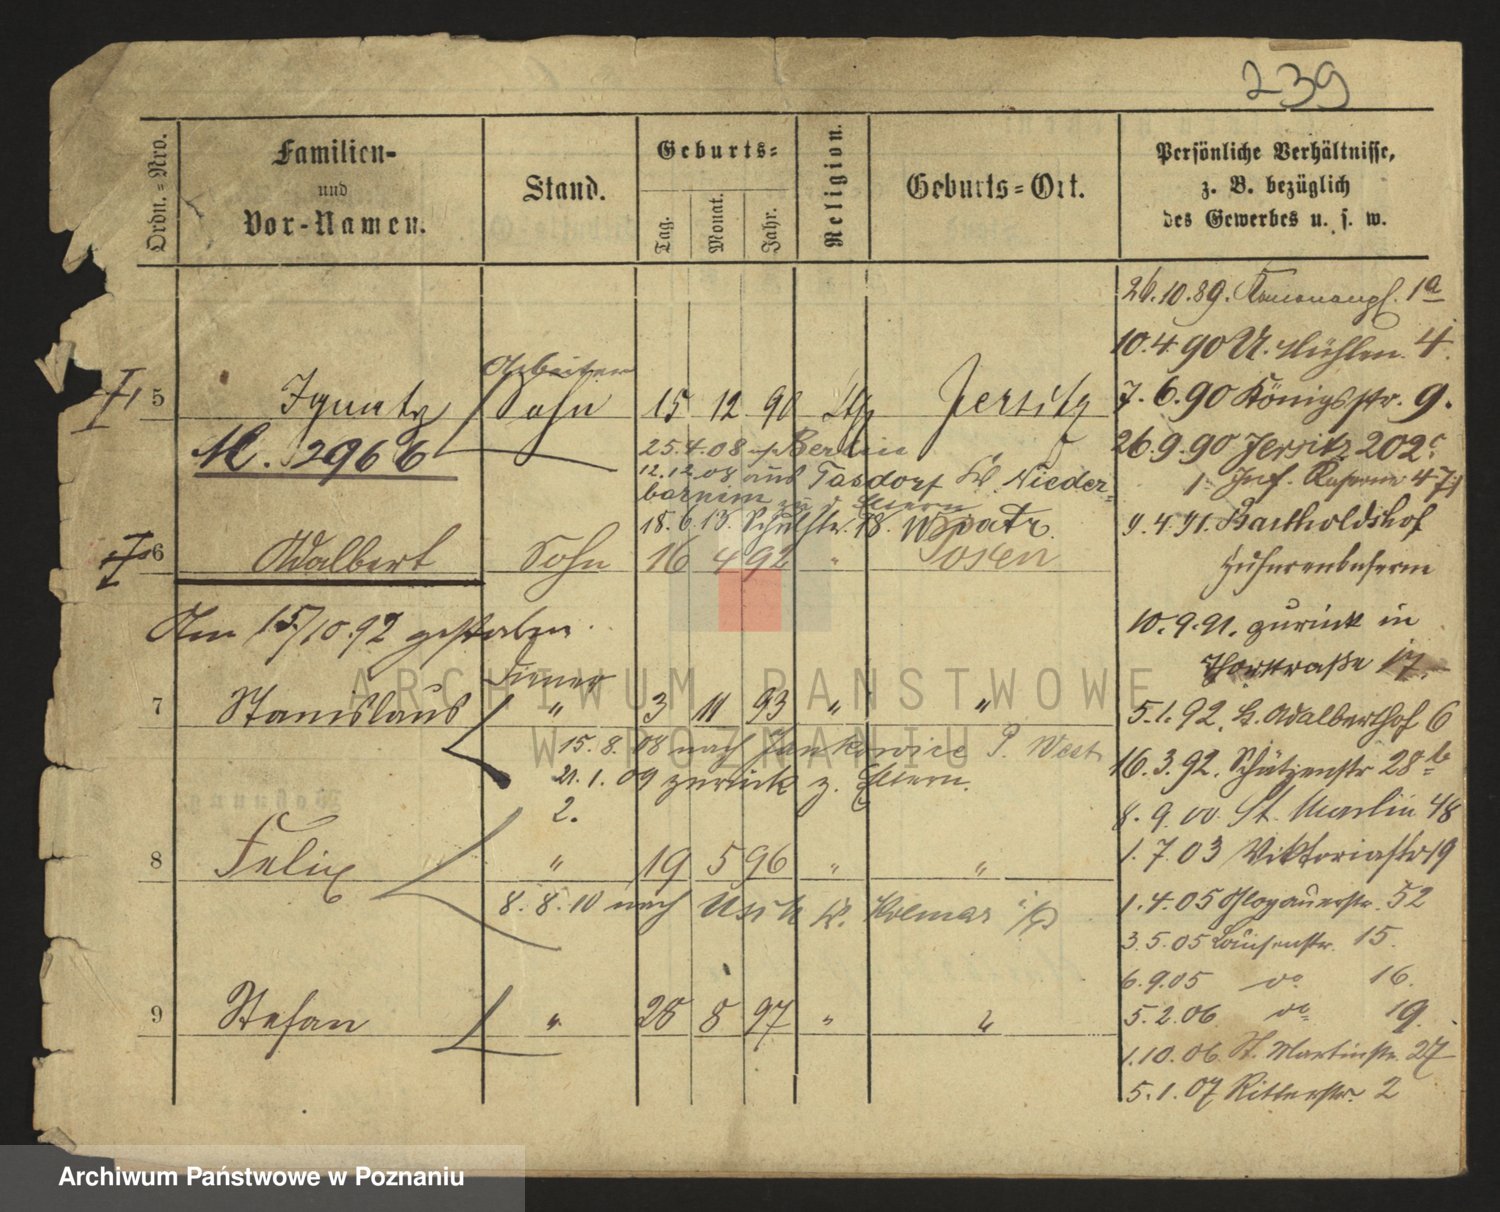 239
Ordn.=Nro.
Familien-
und
Vor-Namen.
Stand.
Geburts=
Tag.
Monat.
Jahr.
Religion.
Geburts=Ort.
Persönliche Verhältnisse,
z. B. bezüglich
des Gewerbes u. s. w.
26.10.89. 1a
10.4.90 U. Mühlen 4.
Arbeiter
5 Ignatz Sohn 15 12 90 kth Jersitz
7.6.90 Königsstr. 9.
M. 2966
25.4.08 n/ Berlin
26.9.90 Jersitz 202c
12.12.08 aus Tasdorf K. Nieder-
barnim zu d. Eltern
1. Inf. Kaserne 471
18.6.13. Schulstr. 18. W
9.4.91. Bartholdshof
6 Adalbert Sohn 16 4 92 " Posen
Husarenkaserne
Am 15/10.92 gestorben.
10.9.91. zurück in
Thorstraße 17.
Diener
7 Stanislaus " 3 11 93 " "
5.1.92. H. Adalberthof 6
15.8.08 nach Jankowice P. West
16.3.92. Schützenstr 28b
21.1.09 zurück z. Eltern.
2.
8.9.00 St. Martin 48
8 Felix " 19 5 96 " "
1.7.03 Viktoriastr 19
8.8.10 nach Usch K. Kolmar i/P
1.4.05 Glogauerstr. 52
3.5.05 Louisenstr. 15.
6.9.05 do 16.
9 Stefan " 28 8 97 " "
5.2.06 do 19.
1.10.06. St. Martinstr. 27
5.1.07 Ritterstr. 2
ARCHIWUM PAŃSTWOWE
W POZNANIU
Archiwum Państwowe w Poznaniu